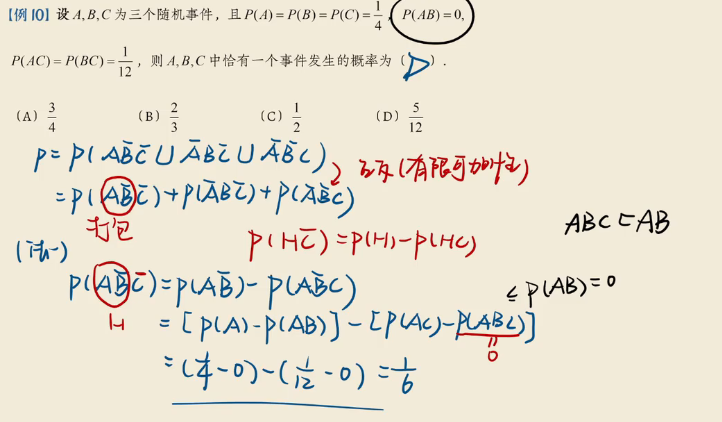 【例10】设 A,B,C 为三个随机事件，且 P(A)=P(B)=P(C)=1/4，P(AB)=0,
P(AC)=P(BC)=1/12，则 A,B,C 中恰有一个事件发生的概率为（D）.
（A）3/4 （B）2/3 （C）1/2 （D）5/12
P=P(AB̄C̄∪ĀBC̄∪ĀB̄C) 互斥(有限可加性)
=P(AB̄C̄)+P(ĀBC̄)+P(ĀB̄C)
打包
P(HC̄)=P(H)-P(HC)
ABC⊂AB
(法一)
P(AB̄C̄)=P(AB̄)-P(AB̄C)
H
≤P(AB)=0
=[P(A)-P(AB)]-[P(AC)-P(ABC)]
0
=(1/4-0)-(1/12-0)=1/6